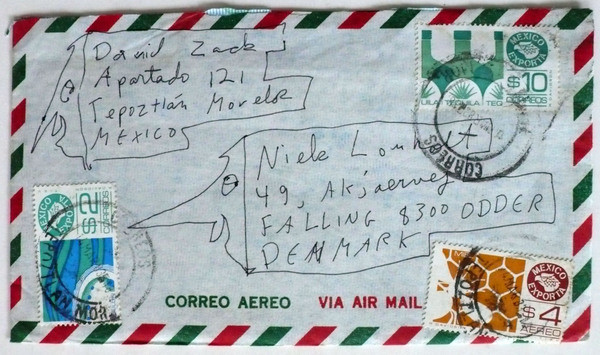 David Zack
Apartado 121
Tepoztlán Morelos
MEXICO
MEXICO
EXPORTA
$10
CORREOS
TEQUILA
CORREOS
Niels Lomholt
49, Akjaervej
FALLING 8300 ODDER
DENMARK
MEXICO
EXPORTA
$2
CORREO AEREO
VIA AIR MAIL
MEXICO
EXPORTA
$4
AEREO